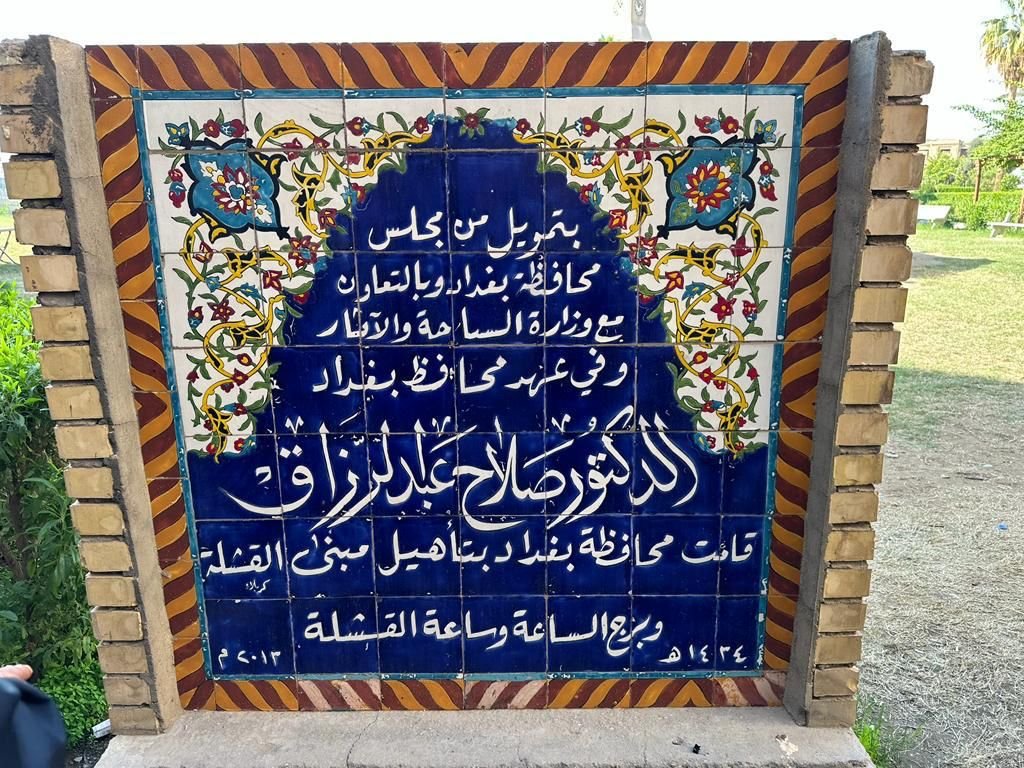 بتمويل من مجلس
محافظة بغداد وبالتعاون
مع وزارة السياحة والآثار
وفي عهد محافظ بغداد
الدكتور صلاح عبدالرزاق
قامت محافظة بغداد بتأهيل مبنى القشلة
كربلاء
وبرج الساعة وساعة القشلة
١٤٣٤ هـ
٢٠١٣ م